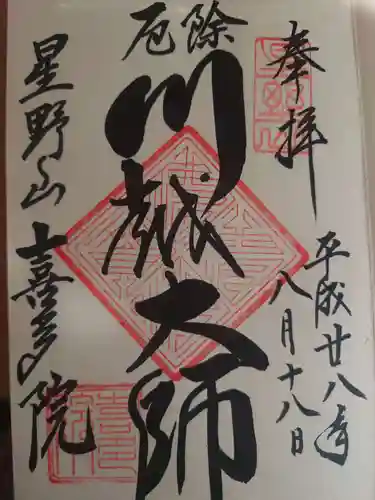 奉拝
平成廿八年
八月十八日
厄除
川越大師
星野山喜多院